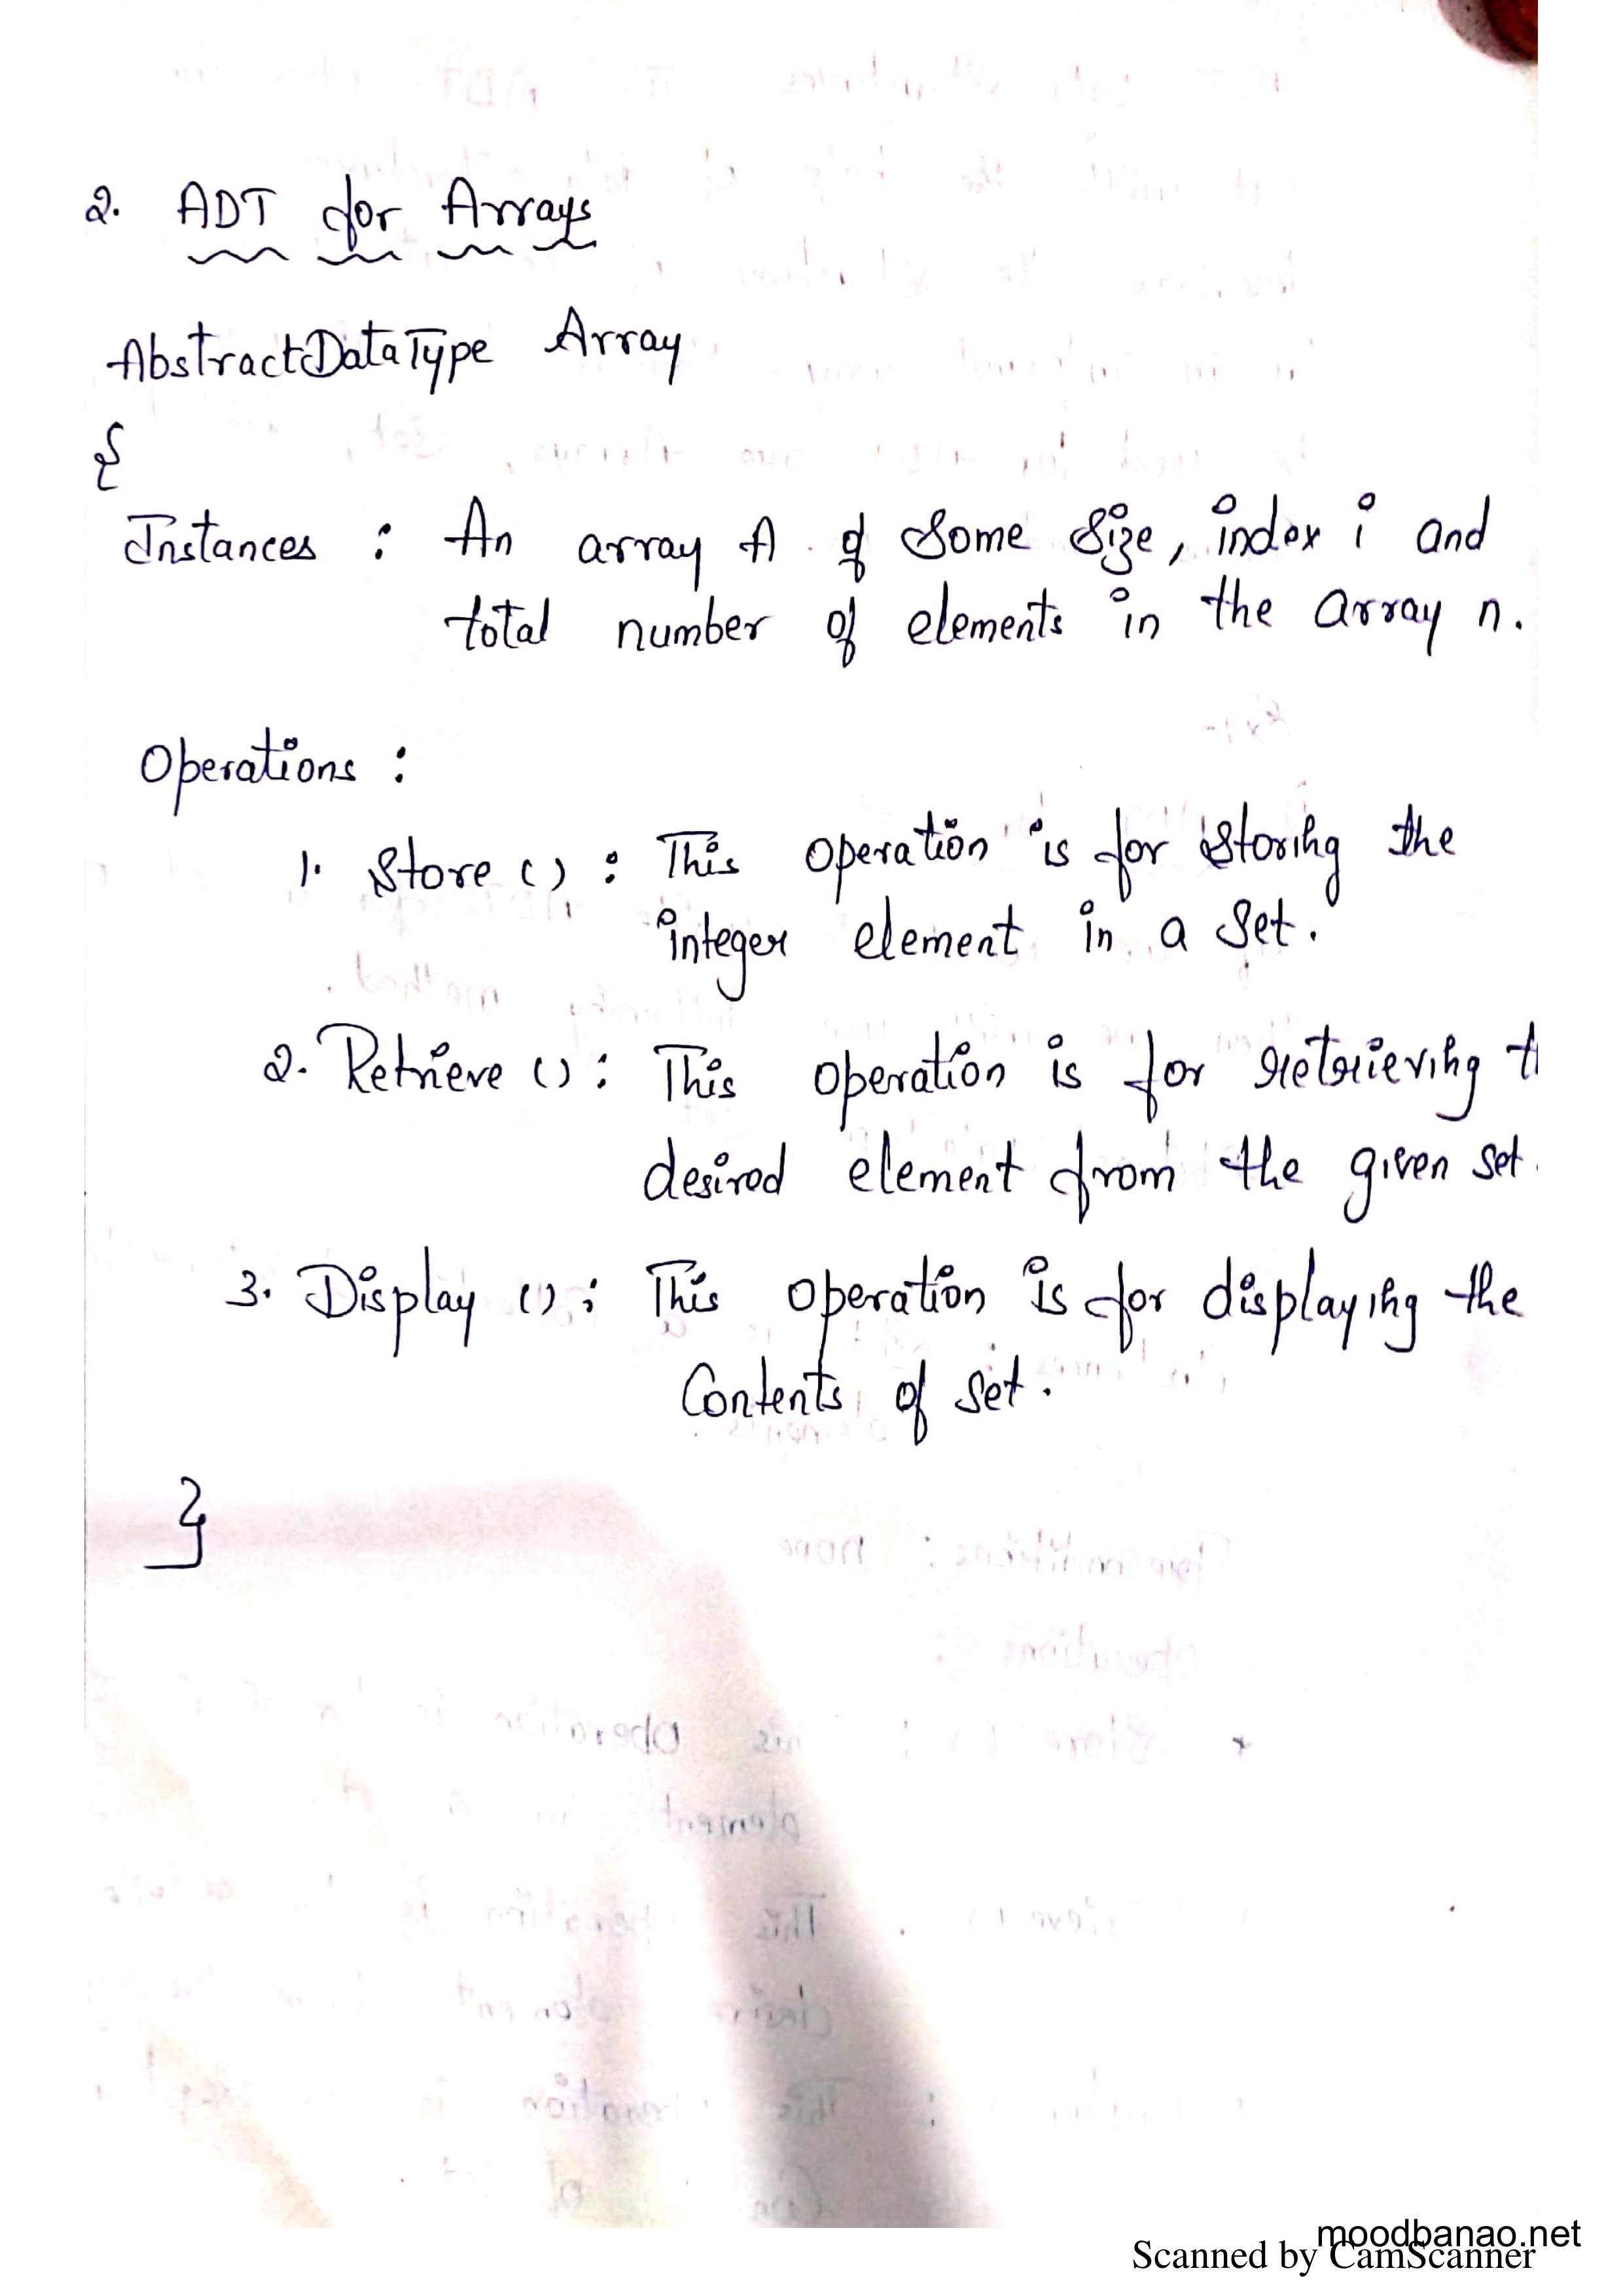 2. ADT for Arrays
AbstractDataType Array
{
Instances : An array A of some size, index i and
total number of elements in the array n.
Operations :
1. Store () : This operation is for storing the
integer element in a set.
2. Retrieve () : This operation is for retrieving
desired element from the given set.
3. Display () : This operation is for displaying the
Contents of set.
}
moodbanao.net
Scanned by CamScanner